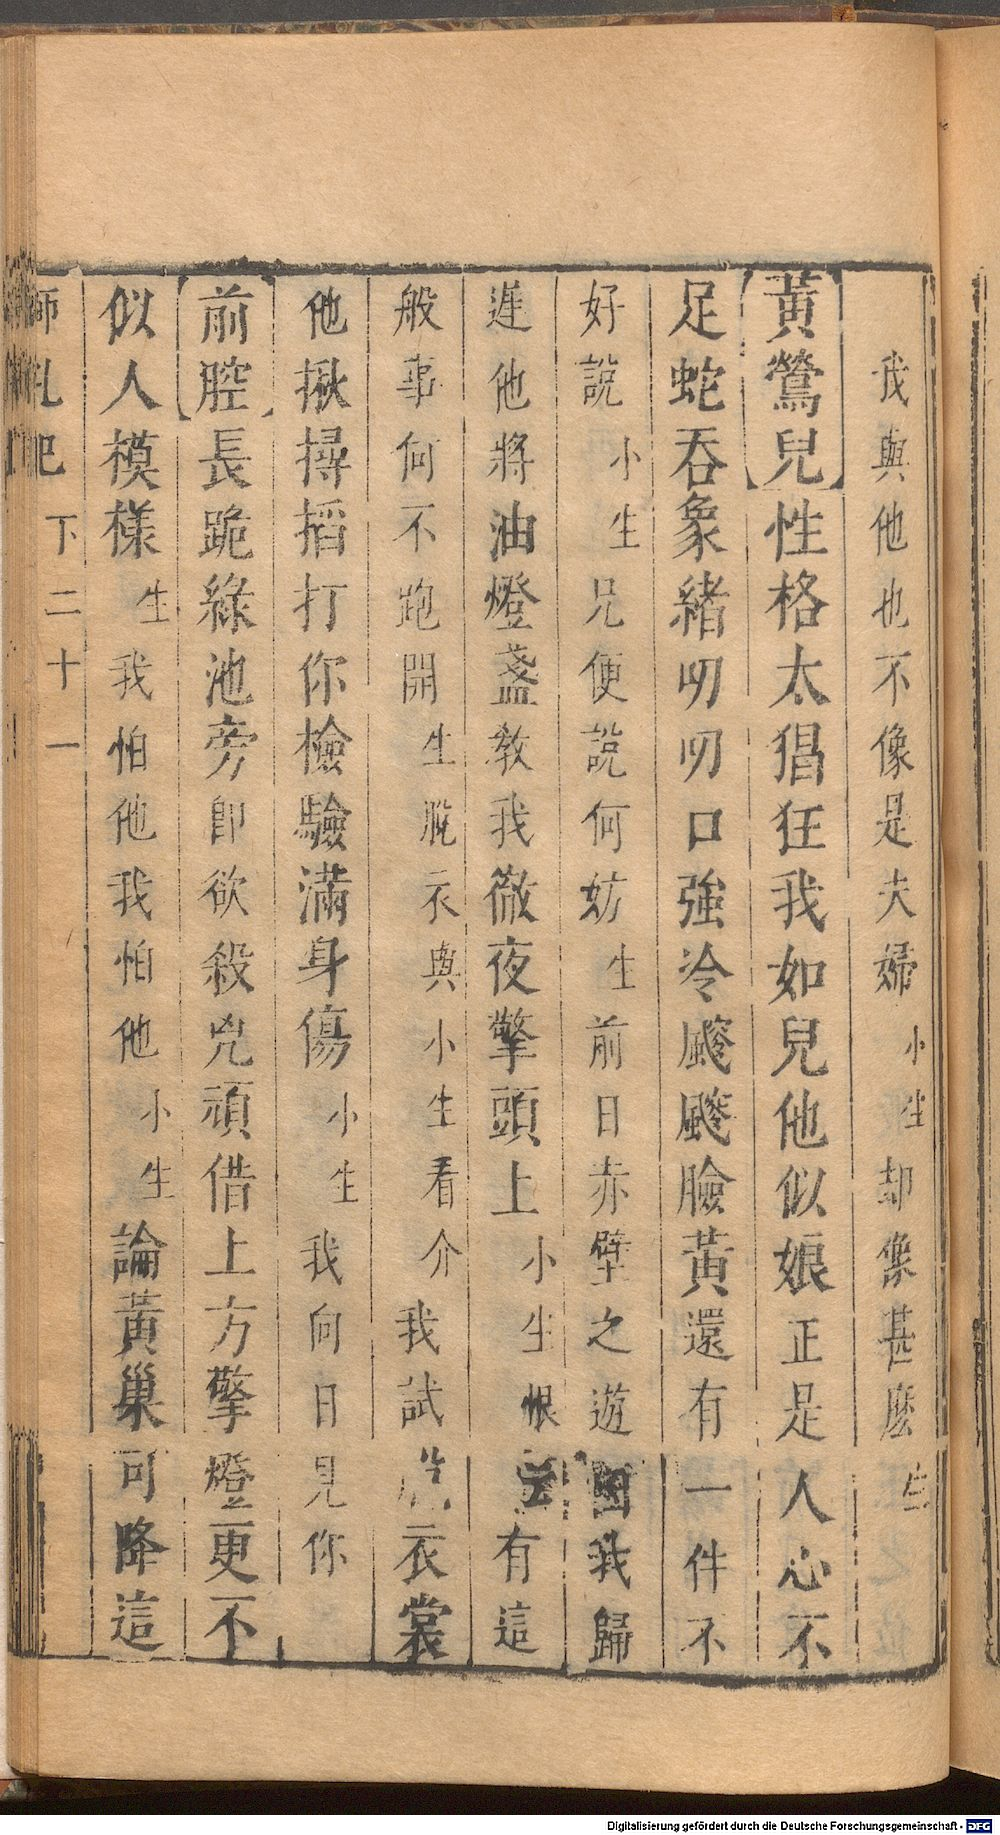 我與他也不像是夫婦小生却像甚麽生
黃鶯兒性格太猖狂我如兒他似娘正是人心不
足蛇吞象緒叨叨口強冷飕飕臉黃還有一件不
好說小生兄便說何妨生前日赤壁之遊因我歸
遲他將油燈盞教我徹夜擎頭上小生恨有這
般事何不跑開生脫衣與小生看介我試衣裳
他揪撏搯打你檢驗滿身傷小生我向日見你
前腔長跪綠池旁卽欲殺兇頑借上方擎燈更不
似人模樣生我怕他我怕他小生論黃巢可降這
下二十一
Digitalisierung gefördert durch die Deutsche Forschungsgemeinschaft - DFG